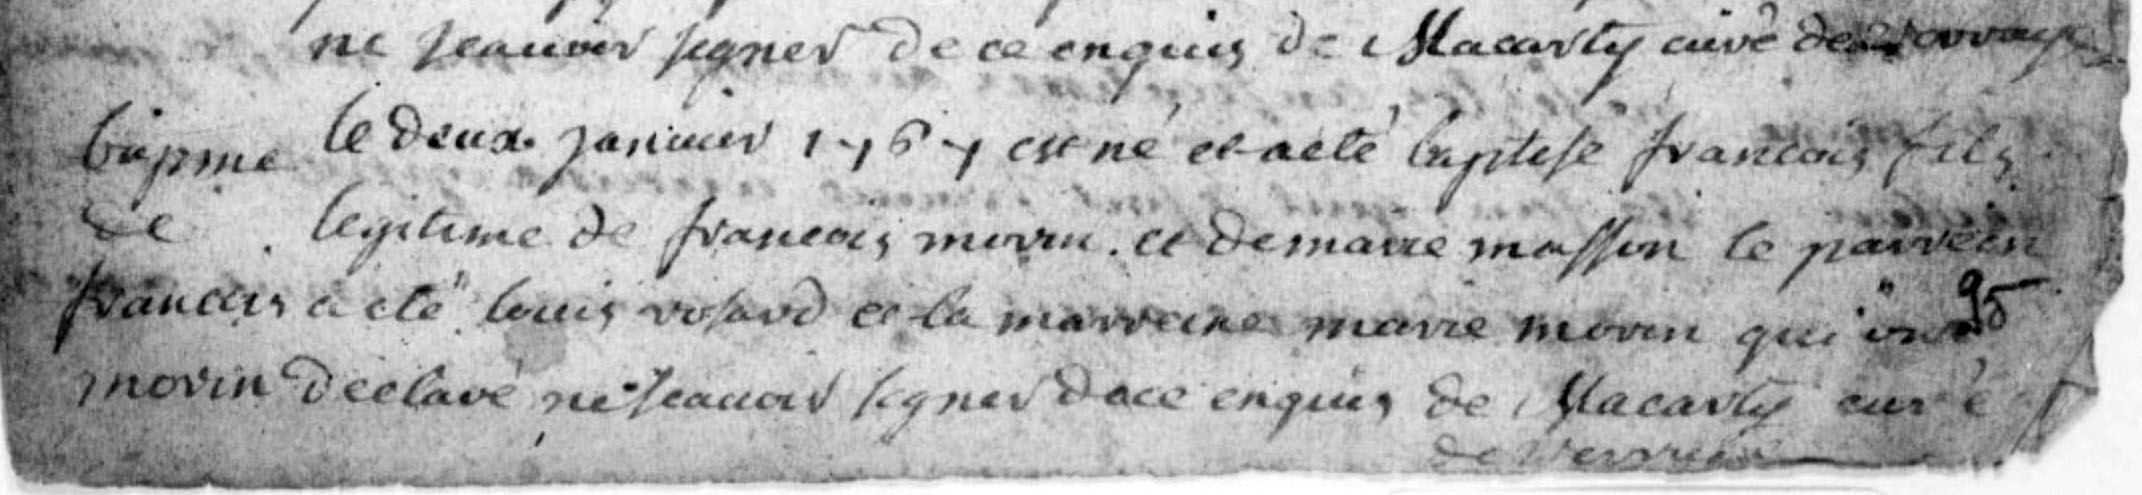 ne scauoir signer de ce enquis de Macarty curé de
bapme le deux janvier 1767 est né et a eté baptisé francois fils
de legitime de francois morin et de marie masson le parrein
francois a eté louis rosard et la marreine marie morin qui ont 95
morin declaré ne scauoir signer de ce enquis de Macarty curé
de